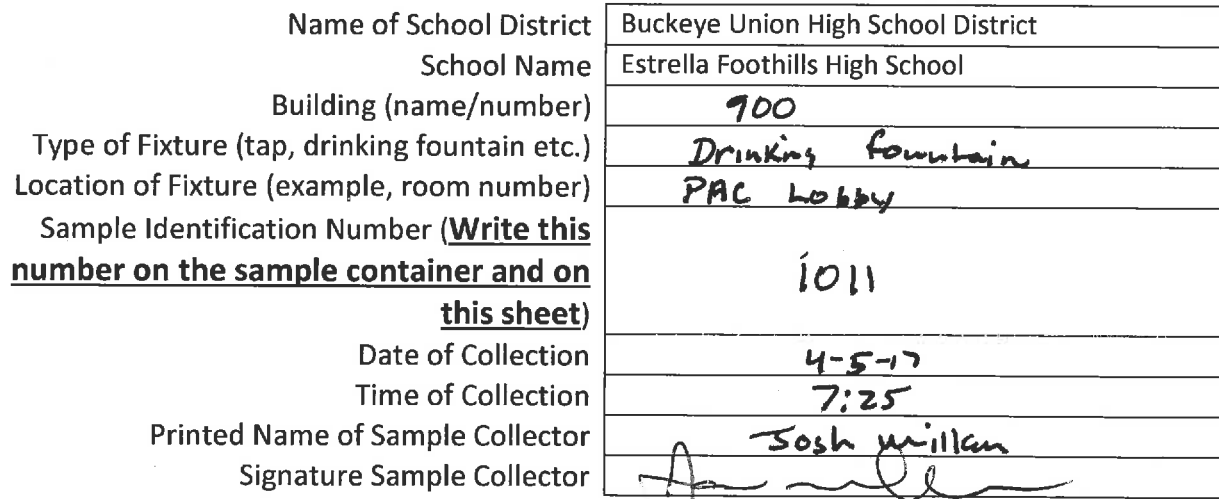 Name of School District Buckeye Union High School District
School Name Estrella Foothills High School
Building (name/number) 900
Type of Fixture (tap, drinking fountain etc.) Drinking fountain
Location of Fixture (example, room number) PAC Lobby
Sample Identification Number (Write this
number on the sample container and on
this sheet) 1011
Date of Collection 4-5-17
Time of Collection 7:25
Printed Name of Sample Collector Josh
Signature Sample Collector